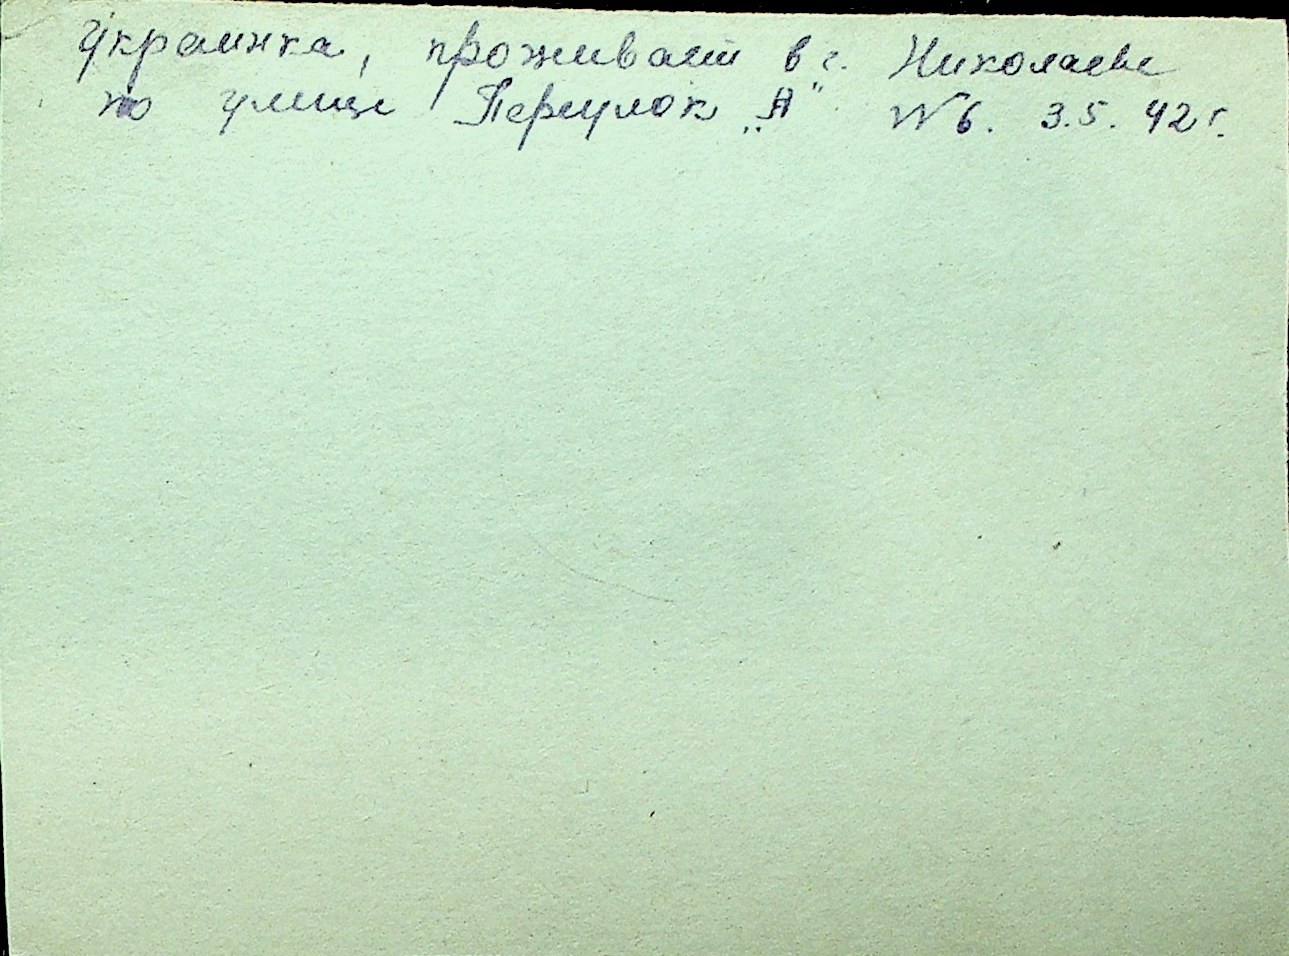 Украинка, проживает в г. Николаеве
по улице Переулок „А" №6. 3.5.42г.